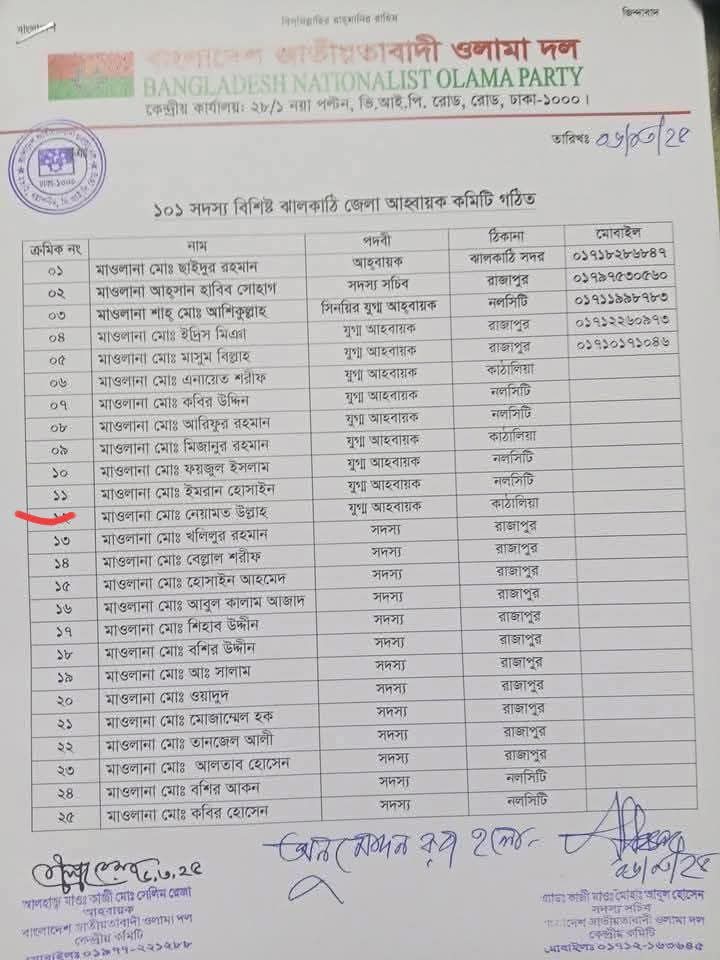 বিসমিল্লাহির রাহমানির রাহিম
জিন্দাবাদ
বাংলাদেশ জাতীয়তাবাদী ওলামা দল
BANGLADESH NATIONALIST OLAMA PARTY
কেন্দ্রীয় কার্যালয়: ২৮/১ নয়া পল্টন, ভি.আই.পি. রোড, রোড, ঢাকা-১০০০।
তারিখঃ
১০১ সদস্য বিশিষ্ট ঝালকাঠি জেলা আহবায়ক কমিটি গঠিত
ক্রমিক নং নাম পদবী ঠিকানা মোবাইল
০১ মাওলানা মোঃ ছাইদুর রহমান আহ্বায়ক ঝালকাঠি সদর ০১৭১৮২৮৬৮৪৭
০২ মাওলানা আহ্সান হাবিব সোহাগ সদস্য সচিব রাজাপুর ০১৭৯৭৫৩০৫৬০
০৩ মাওলানা শাহ্ মোঃ আশিকুল্লাহ সিনিয়র যুগ্ম আহ্বায়ক নলসিটি ০১৭১১৯৯৮৭৮৩
০৪ মাওলানা মোঃ ইদ্রিস মিঞা যুগ্ম আহবায়ক রাজাপুর ০১৭১২২৬০৯৭৩
০৫ মাওলানা মোঃ মাসুম বিল্লাহ যুগ্ম আহবায়ক রাজাপুর ০১৭১০১৭১০৪৬
০৬ মাওলানা মোঃ এনায়েত শরীফ যুগ্ম আহবায়ক কাঠালিয়া
০৭ মাওলানা মোঃ কবির উদ্দিন যুগ্ম আহবায়ক নলসিটি
০৮ মাওলানা মোঃ আরিফুর রহমান যুগ্ম আহবায়ক নলসিটি
০৯ মাওলানা মোঃ মিজানুর রহমান যুগ্ম আহবায়ক কাঠালিয়া
১০ মাওলানা মোঃ ফয়জুল ইসলাম যুগ্ম আহবায়ক নলসিটি
১১ মাওলানা মোঃ ইমরান হোসাইন যুগ্ম আহবায়ক নলসিটি
মাওলানা মোঃ নেয়ামত উল্লাহ যুগ্ম আহবায়ক কাঠালিয়া
১৩ মাওলানা মোঃ খলিলুর রহমান সদস্য রাজাপুর
১৪ মাওলানা মোঃ বেল্লাল শরীফ সদস্য রাজাপুর
১৫ মাওলানা মোঃ হোসাইন আহমেদ সদস্য রাজাপুর
১৬ মাওলানা মোঃ আবুল কালাম আজাদ সদস্য রাজাপুর
১৭ মাওলানা মোঃ শিহাব উদ্দীন সদস্য রাজাপুর
১৮ মাওলানা মোঃ বশির উদ্দীন সদস্য রাজাপুর
১৯ মাওলানা মোঃ আঃ সালাম সদস্য রাজাপুর
২০ মাওলানা মোঃ ওয়াদুদ সদস্য রাজাপুর
২১ মাওলানা মোঃ মোজাম্মেল হক সদস্য রাজাপুর
২২ মাওলানা মোঃ তানজেল আলী সদস্য রাজাপুর
২৩ মাওলানা মোঃ আলতাব হোসেন সদস্য রাজাপুর
২৪ মাওলানা মোঃ বশির আকন সদস্য নলসিটি
২৫ মাওলানা মোঃ কবির হোসেন সদস্য নলসিটি
অনুমোদন করা হলো-
আলহাজ্ব মাওঃ কাজী মোঃ সেলিম রেজা
আহবায়ক
বাংলাদেশ জাতীয়তাবাদী ওলামা দল
কেন্দ্রীয় কমিটি
মোবাইলঃ ০১৯৭৭-২২১২৮৮
এ্যাডঃ কাজী মাওঃ মোহাঃ আবুল হোসেন
সদস্য সচিব
বাংলাদেশ জাতীয়তাবাদী ওলামা দল
কেন্দ্রীয় কমিটি
মোবাইলঃ ০১৭১২-১৬৩৬৪৫